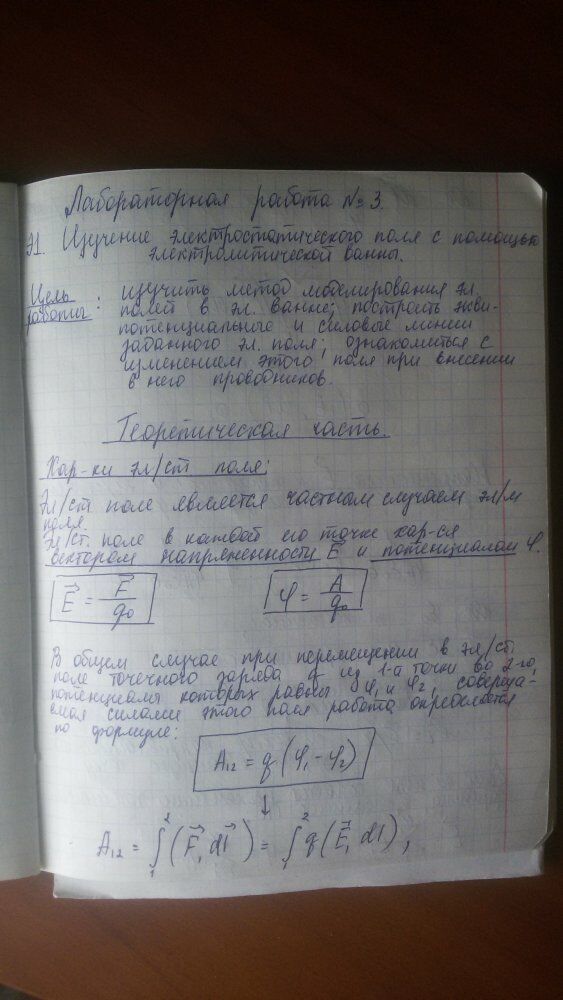 Лабораторная работа № 3.
Э1. Изучение электростатического поля с помощью
электролитической ванны.
Цель работы: изучить метод моделирования эл.
полей в эл. ванне; построить экви-
потенциальные и силовые линии
заданного эл. поля; ознакомиться с
изменением этого поля при внесении
в него проводников.
Теоретическая часть.
Хар-ки эл/ст поля:
Эл/ст поле является частным случаем эл/м
поля.
Эл/ст. поле в каждой его точке хар-ся
вектором напряженности E⃗ и потенциалом φ.
E⃗ = F⃗/q₀ φ = A/q₀
В общем случае при перемещении в эл/ст.
поле точечного заряда q из 1-й точки во 2-ю,
потенциалы которых равны φ₁ и φ₂, соверша-
емая силами этого поля работа определяется
по формуле:
A₁₂ = q(φ₁ - φ₂)
↓
A₁₂ = ∫₁² (F⃗, dl⃗) = ∫₁² q(E⃗, dl),